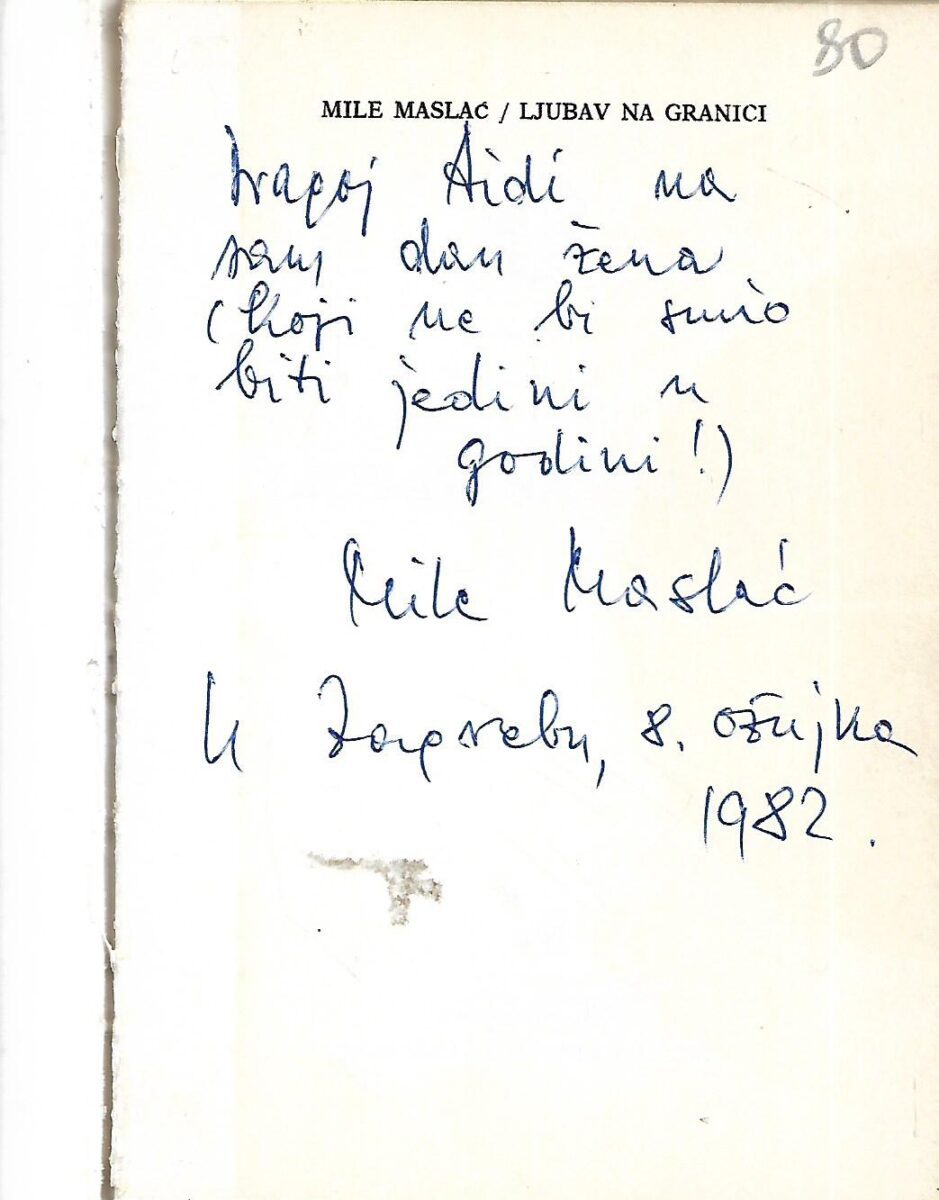 80
MILE MASLAĆ / LJUBAV NA GRANICI
Dragoj Aidi na
sam dan žena
(koji ne bi smio
biti jedini u
godini!)
Mile Maslać
U Zagrebu, 8. ožujka
1982.